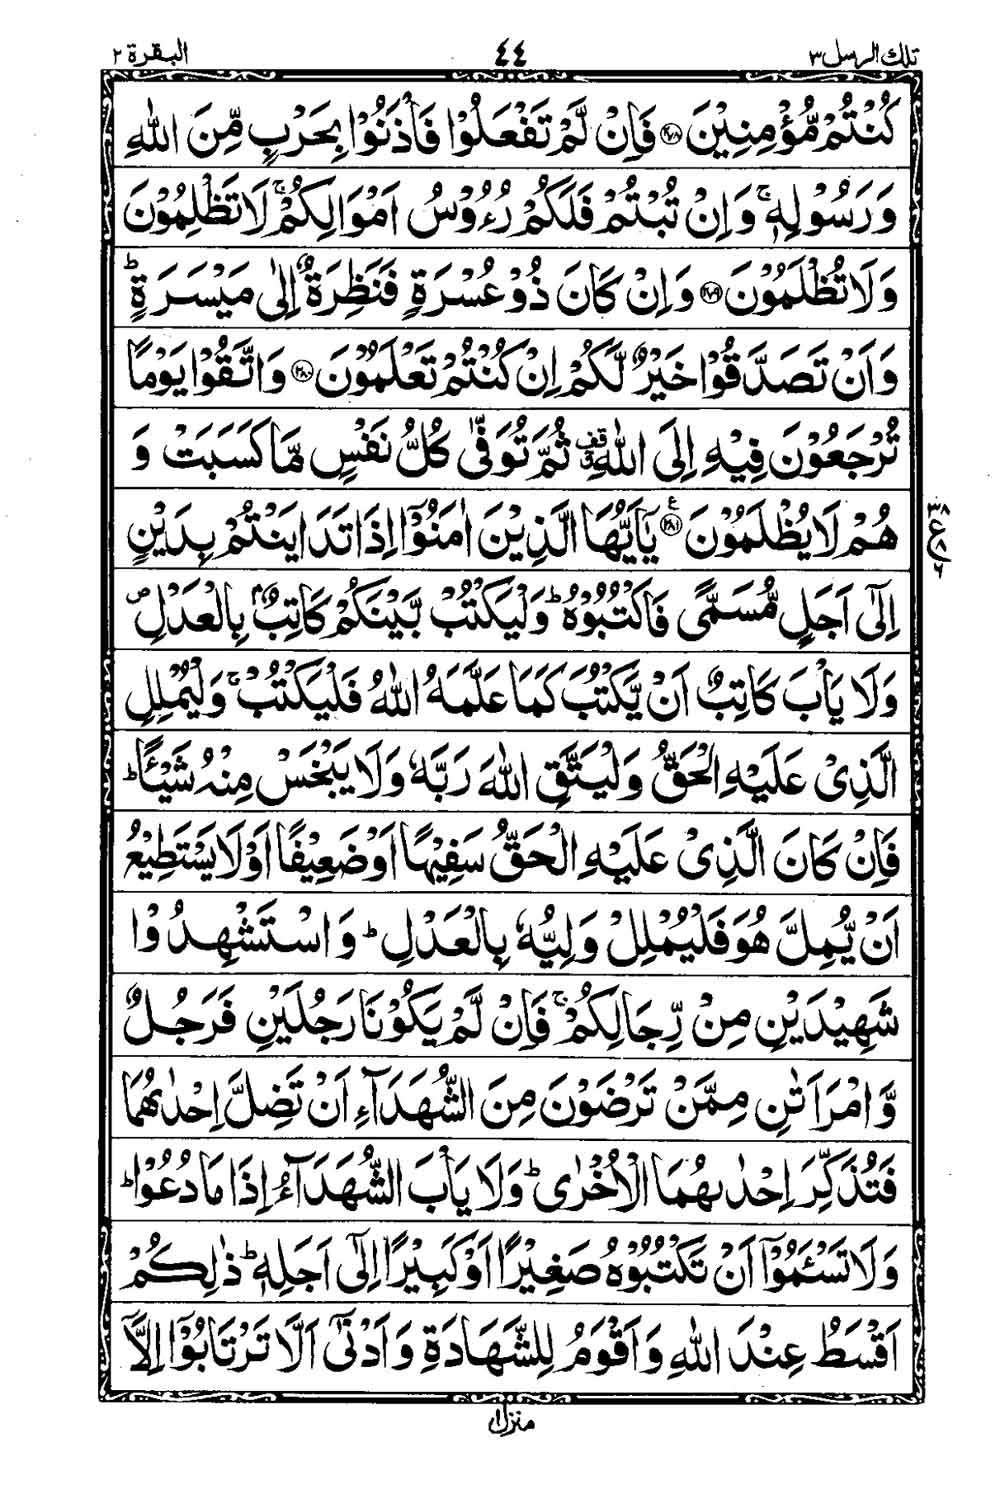 تلك الرسل ٣
٤٤
البقرة ٢
كُنْتُمْ مُّؤْمِنِيْنَ ۝٢٧٨ فَاِنْ لَّمْ تَفْعَلُوْا فَاْذَنُوْا بِحَرْبٍ مِّنَ اللّٰهِ
وَرَسُوْلِهٖ ۚ وَاِنْ تُبْتُمْ فَلَكُمْ رُءُوْسُ اَمْوَالِكُمْ ۚ لَا تَظْلِمُوْنَ
وَلَا تُظْلَمُوْنَ ۝٢٧٩ وَاِنْ كَانَ ذُوْ عُسْرَةٍ فَنَظِرَةٌ اِلٰى مَيْسَرَةٍ ؕ
وَاَنْ تَصَدَّقُوْا خَيْرٌ لَّكُمْ اِنْ كُنْتُمْ تَعْلَمُوْنَ ۝٢٨٠ وَاتَّقُوْا يَوْمًا
تُرْجَعُوْنَ فِيْهِ اِلَى اللّٰهِ ۗ قف ثُمَّ تُوَفّٰى كُلُّ نَفْسٍ مَّا كَسَبَتْ وَ
هُمْ لَا يُظْلَمُوْنَ ۝٢٨١ ع يٰۤاَيُّهَا الَّذِيْنَ اٰمَنُوْۤا اِذَا تَدَايَنْتُمْ بِدَيْنٍ
اِلٰۤى اَجَلٍ مُّسَمًّى فَاكْتُبُوْهُ ؕ وَلْيَكْتُبْ بَّيْنَكُمْ كَاتِبٌۢ بِالْعَدْلِ ۪
وَلَا يَاْبَ كَاتِبٌ اَنْ يَّكْتُبَ كَمَا عَلَّمَهُ اللّٰهُ فَلْيَكْتُبْ ۚ وَلْيُمْلِلِ
الَّذِيْ عَلَيْهِ الْحَقُّ وَلْيَتَّقِ اللّٰهَ رَبَّهٗ وَلَا يَبْخَسْ مِنْهُ شَيْـًٔا ؕ
فَاِنْ كَانَ الَّذِيْ عَلَيْهِ الْحَقُّ سَفِيْهًا اَوْ ضَعِيْفًا اَوْ لَا يَسْتَطِيْعُ
اَنْ يُّمِلَّ هُوَ فَلْيُمْلِلْ وَلِيُّهٗ بِالْعَدْلِ ؕ وَاسْتَشْهِدُوْا
شَهِيْدَيْنِ مِنْ رِّجَالِكُمْ ۚ فَاِنْ لَّمْ يَكُوْنَا رَجُلَيْنِ فَرَجُلٌ
وَّامْرَاَتٰنِ مِمَّنْ تَرْضَوْنَ مِنَ الشُّهَدَآءِ اَنْ تَضِلَّ اِحْدٰىهُمَا
فَتُذَكِّرَ اِحْدٰىهُمَا الْاُخْرٰى ؕ وَلَا يَاْبَ الشُّهَدَآءُ اِذَا مَا دُعُوْا ؕ
وَلَا تَسْـَٔمُوْۤا اَنْ تَكْتُبُوْهُ صَغِيْرًا اَوْ كَبِيْرًا اِلٰۤى اَجَلِهٖ ؕ ذٰلِكُمْ
اَقْسَطُ عِنْدَ اللّٰهِ وَاَقْوَمُ لِلشَّهَادَةِ وَاَدْنٰۤى اَلَّا تَرْتَابُوْۤا اِلَّاۤ
منزل ١